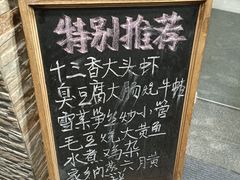 特别推荐
十三香大头虾
臭豆腐大肠烧牛蛙
雪菜笋丝炒小管
毛豆烧大黄鱼
水煮鸡杂
六月黄